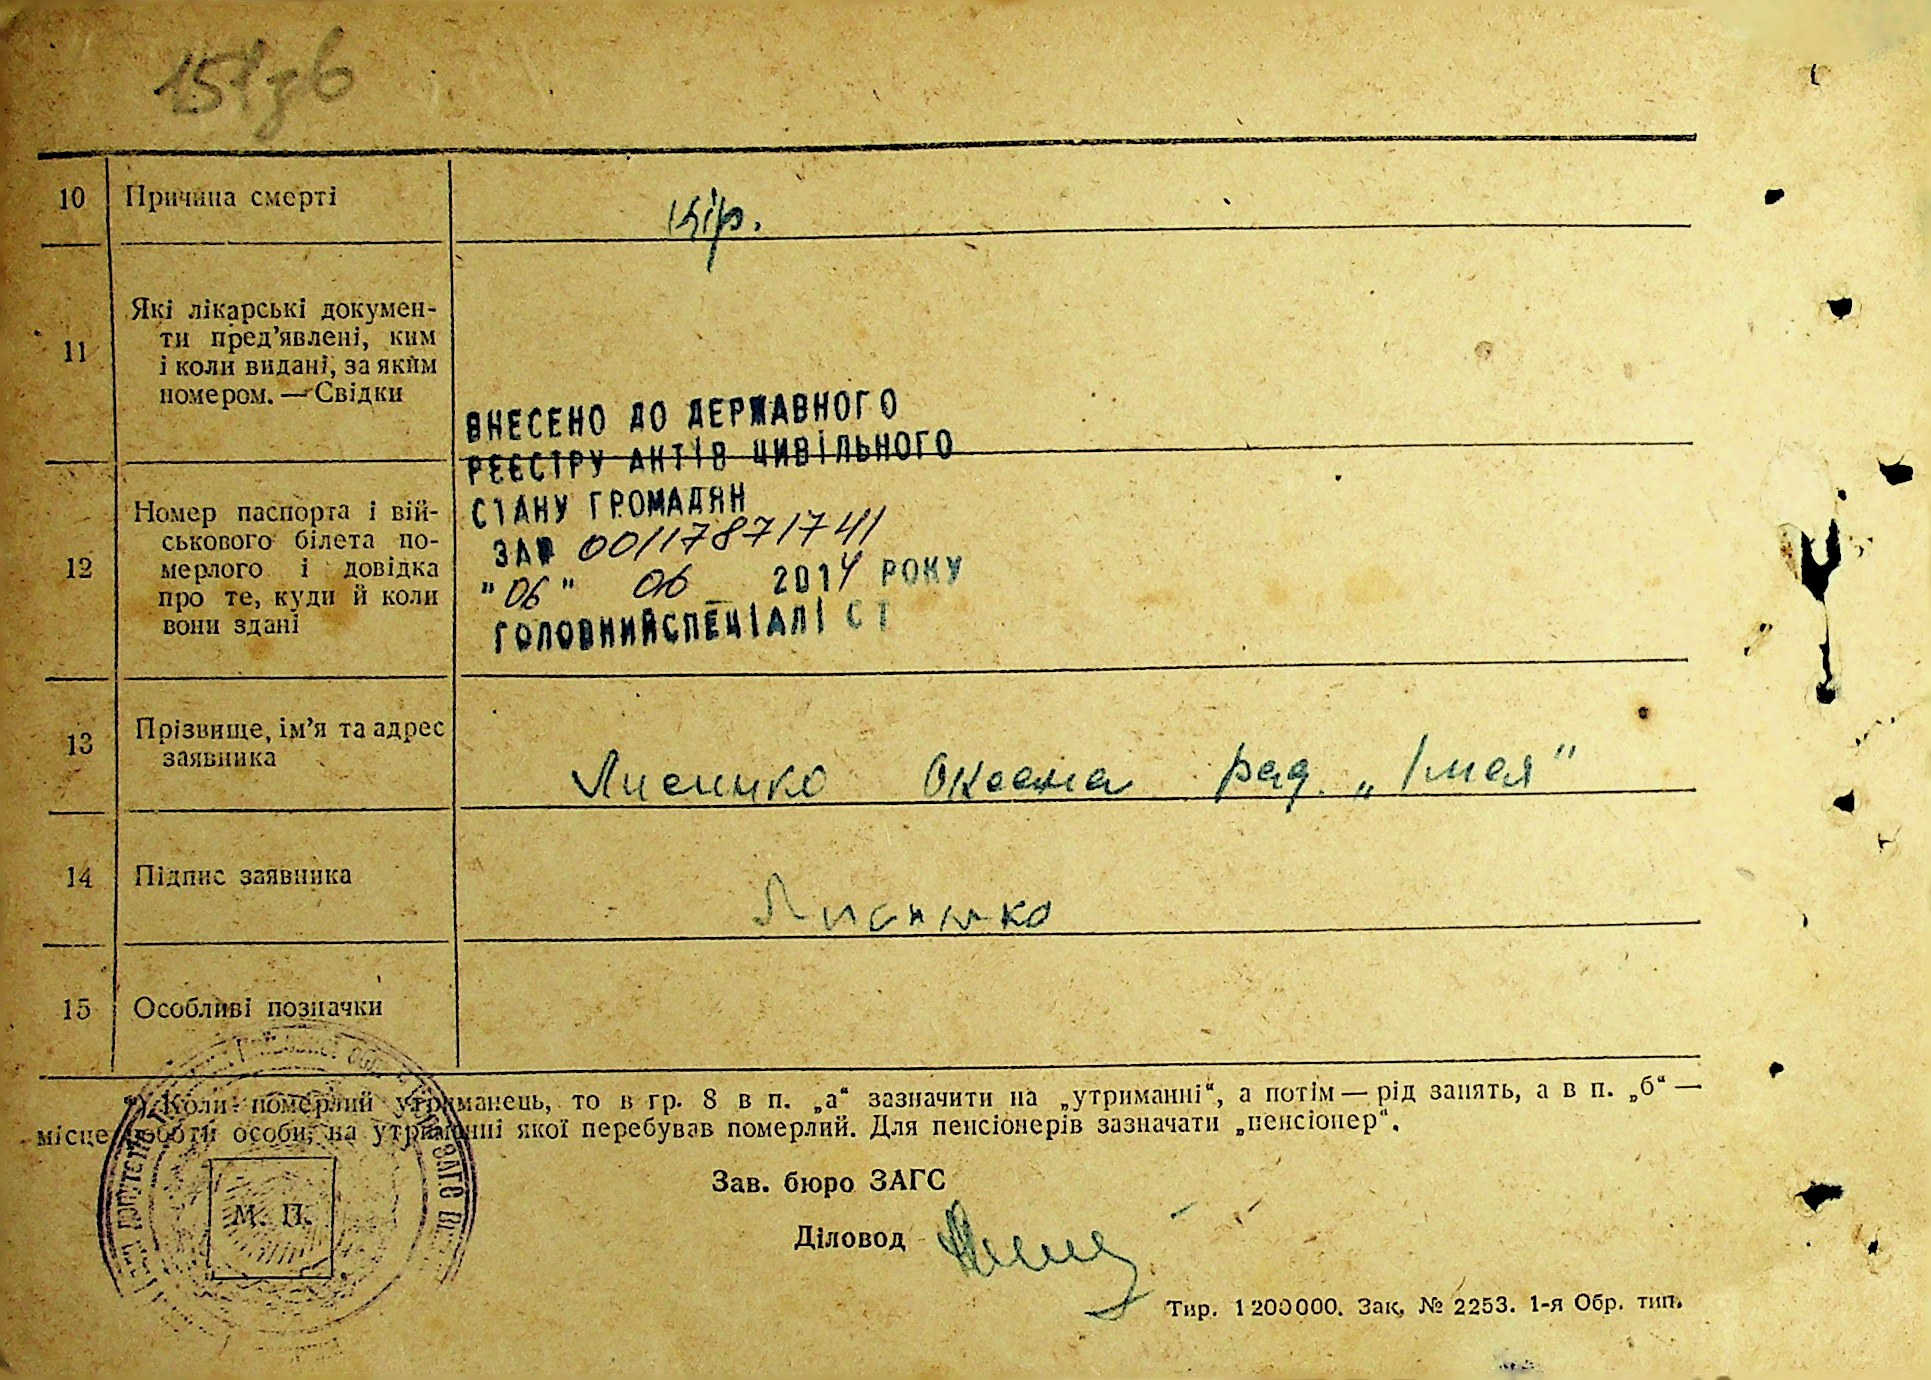 10 Причина смерті кір.
11 Які лікарські докумен-
ти пред'явлені, ким
і коли видані, за яким
номером. — Свідки
ВНЕСЕНО ДО ДЕРЖАВНОГО
РЕЄСТРУ АКТІВ ЦИВІЛЬНОГО
СТАНУ ГРОМАДЯН
ЗА№ 00117871741
"06" 06 2014 РОКУ
ГОЛОВНИЙ СПЕЦІАЛІСТ
12 Номер паспорта і вій-
ськового білета по-
мерлого і довідка
про те, куди й коли
вони здані
13 Прізвище, ім'я та адрес
заявника
Лисенко Оксана рад.
14 Підпис заявника
Лисенко
15 Особливі позначки
*) Коли померлий утриманець, то в гр. 8 в п. „а“ зазначити на „утриманні“, а потім — рід занять, а в п. „б“ —
місце роботи особи, на утриманні якої перебував померлий. Для пенсіонерів зазначати „пенсіонер“.
Зав. бюро ЗАГС
М. П.
Діловод
Тир. 1200000. Зак. № 2253. 1-я Обр. тип.